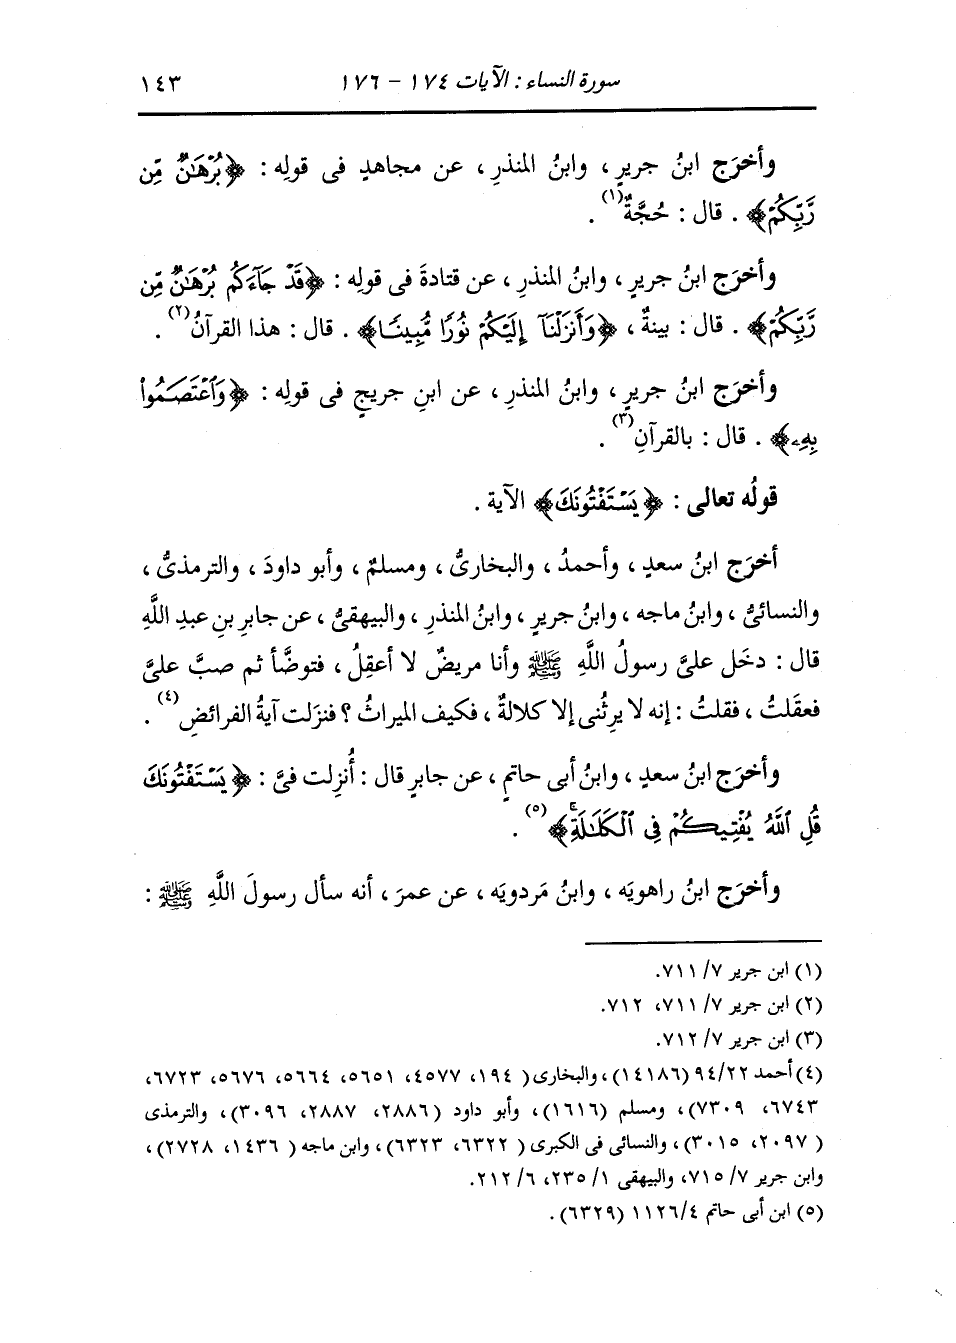 سورة النساء : الآيات ١٧٤ - ١٧٦ ١٤٣
وأخرَج ابنُ جريرٍ ، وابنُ المنذرِ ، عن مجاهدٍ فى قولِه : ﴿بُرْهَٰنٌ مِّن
رَّبِّكُمْ﴾ . قال : حُجَّةٌ(١) .
وأخرَج ابنُ جريرٍ ، وابنُ المنذرِ ، عن قتادةَ فى قولِه : ﴿قَدْ جَآءَكُم بُرْهَٰنٌ مِّن
رَّبِّكُمْ﴾ . قال : بينةٌ ، ﴿وَأَنزَلْنَآ إِلَيْكُمْ نُورًا مُّبِينًا﴾ . قال : هذا القرآنُ(٢) .
وأخرَج ابنُ جريرٍ ، وابنُ المنذرِ ، عن ابنِ جريجٍ فى قولِه : ﴿وَٱعْتَصَمُوا۟
بِهِۦ﴾ . قال : بالقرآنِ(٣) .
قولُه تعالى : ﴿يَسْتَفْتُونَكَ﴾ الآية .
أخرَج ابنُ سعدٍ ، وأحمدُ ، والبخارىُّ ، ومسلمٌ ، وأبو داودَ ، والترمذىُّ ،
والنسائىُّ ، وابنُ ماجه ، وابنُ جريرٍ ، وابنُ المنذرِ ، والبيهقىُّ ، عن جابرِ بنِ عبدِ اللَّهِ
قال : دخَل علىَّ رسولُ اللَّهِ ﷺ وأنا مريضٌ لا أعقِلُ ، فتوضَّأ ثم صبَّ علىَّ
فعقَلتُ ، فقلتُ : إنه لا يرِثُنى إلا كلالةٌ ، فكيف الميراثُ ؟ فنزَلت آيةُ الفرائضِ(٤) .
وأخرَج ابنُ سعدٍ ، وابنُ أبى حاتمٍ ، عن جابرٍ قال : أُنزِلت فىَّ : ﴿يَسْتَفْتُونَكَ
قُلِ ٱللَّهُ يُفْتِيكُمْ فِى ٱلْكَلَٰلَةِۚ﴾(٥) .
وأخرَج ابنُ راهويَه ، وابنُ مَردويَه ، عن عمرَ ، أنه سأل رسولَ اللَّهِ ﷺ :
(١) ابن جرير ٧/ ٧١١.
(٢) ابن جرير ٧/ ٧١١، ٧١٢.
(٣) ابن جرير ٧/ ٧١٢.
(٤) أحمد ٩٤/٢٢ (١٤١٨٦)، والبخارى( ١٩٤، ٤٥٧٧، ٥٦٥١، ٥٦٦٤، ٥٦٧٦، ٦٧٢٣،
٦٧٤٣، ٧٣٠٩)، ومسلم (١٦١٦)، وأبو داود (٢٨٨٦، ٢٨٨٧، ٣٠٩٦)، والترمذى
( ٢٠٩٧، ٣٠١٥)، والنسائى فى الكبرى ( ٦٣٢٢، ٦٣٢٣)، وابن ماجه ( ١٤٣٦، ٢٧٢٨)،
وابن جرير ٧/ ٧١٥، والبيهقى ١/ ٢٣٥، ٦/ ٢١٢.
(٥) ابن أبى حاتم ١١٢٦/٤ (٦٣٢٩).